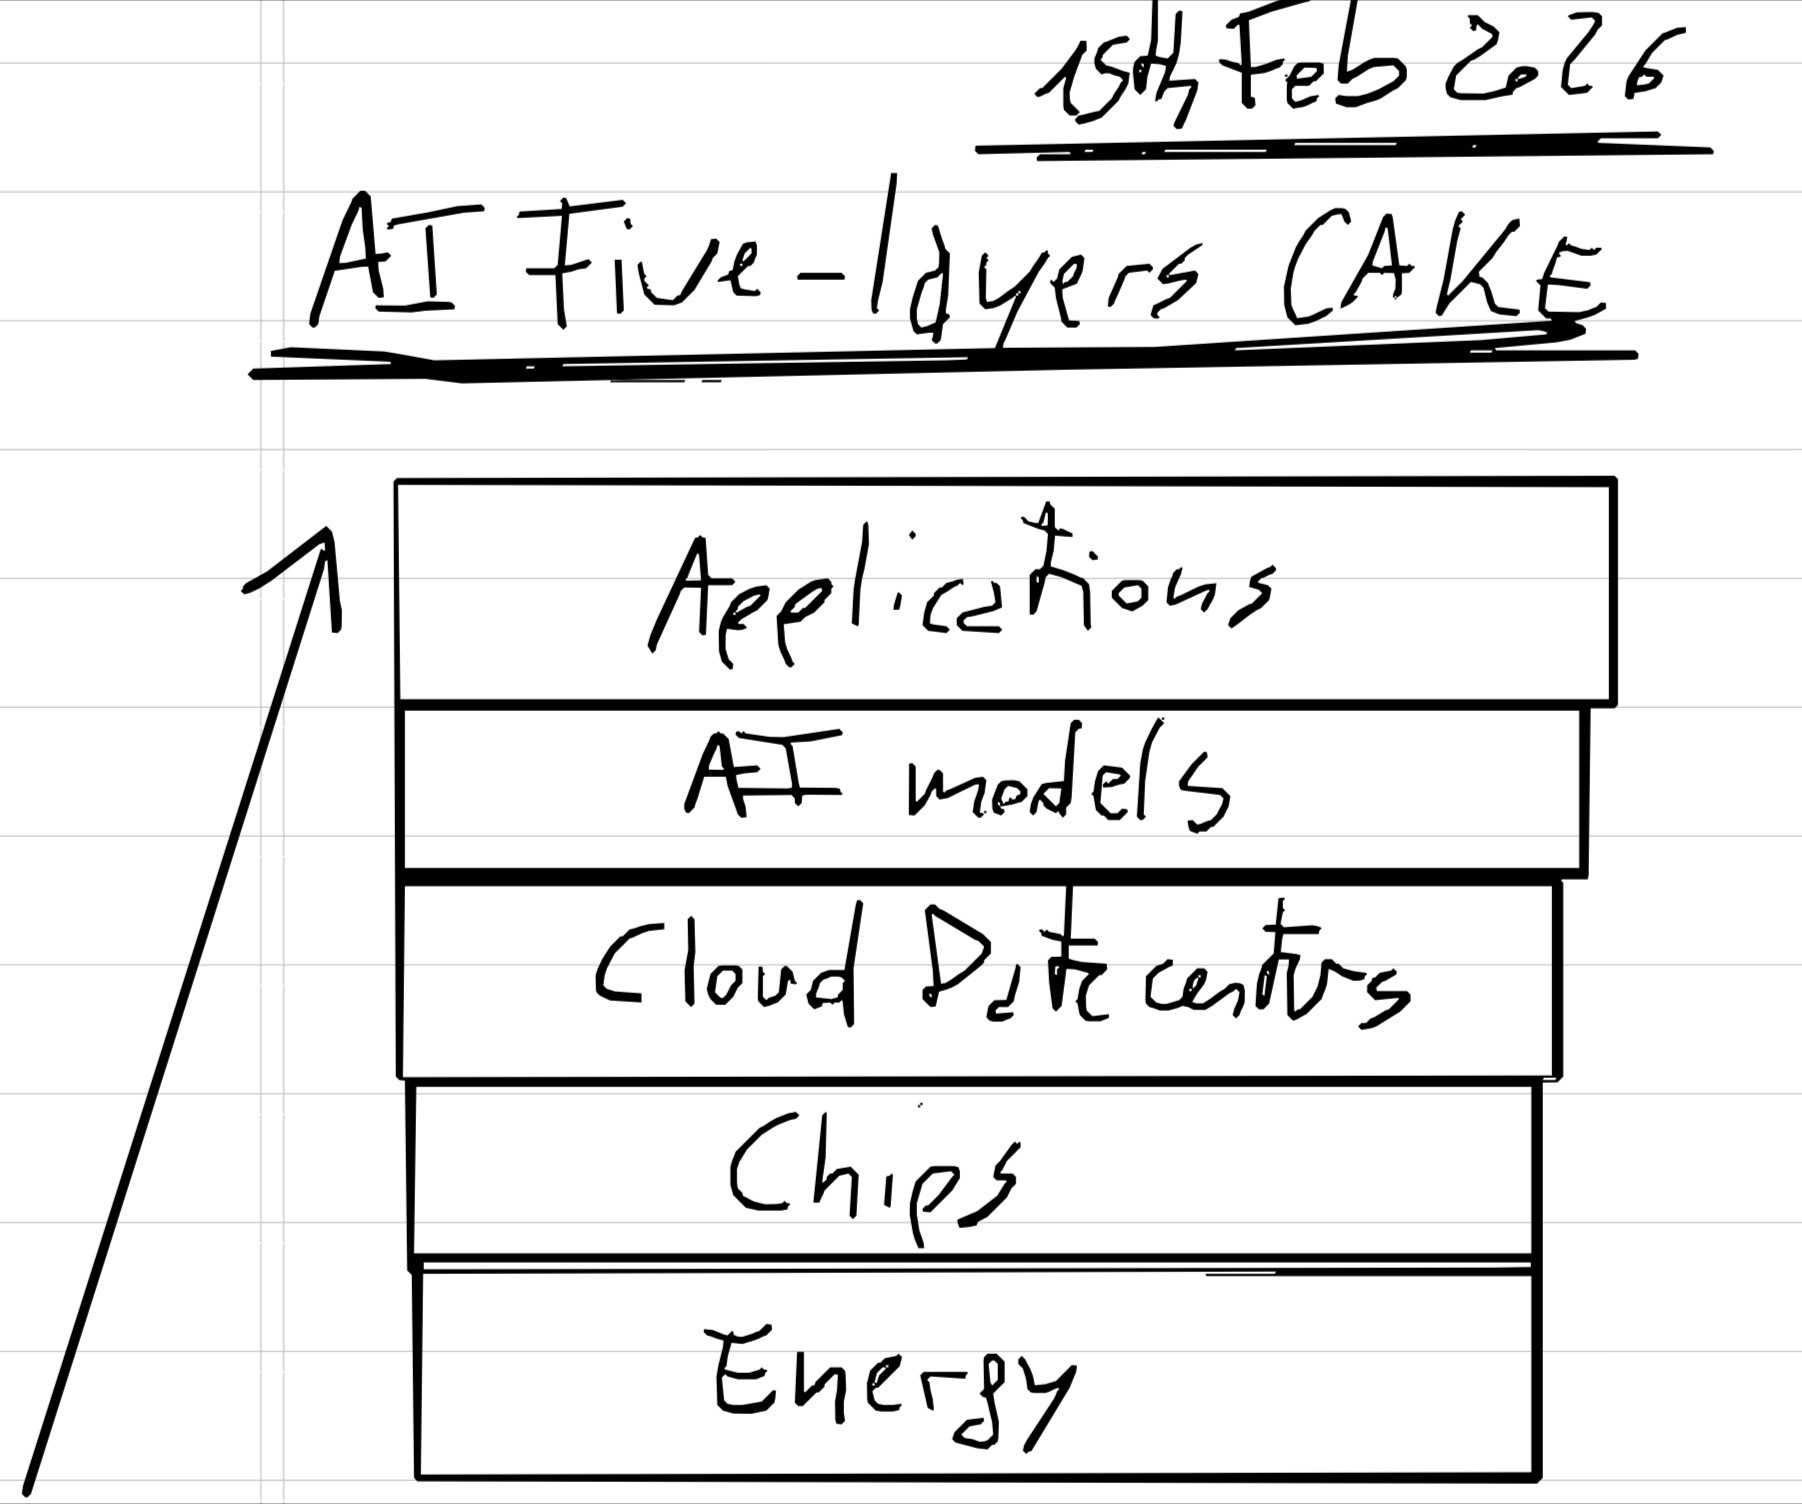 15th Feb 2026
AI Five-layers CAKE
Applications
AI models
Cloud Datacenters
Chips
Energy